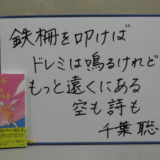 鉄柵を叩けば
ドレミは鳴るけれど
もっと遠くにある
空も詩も
千葉聡